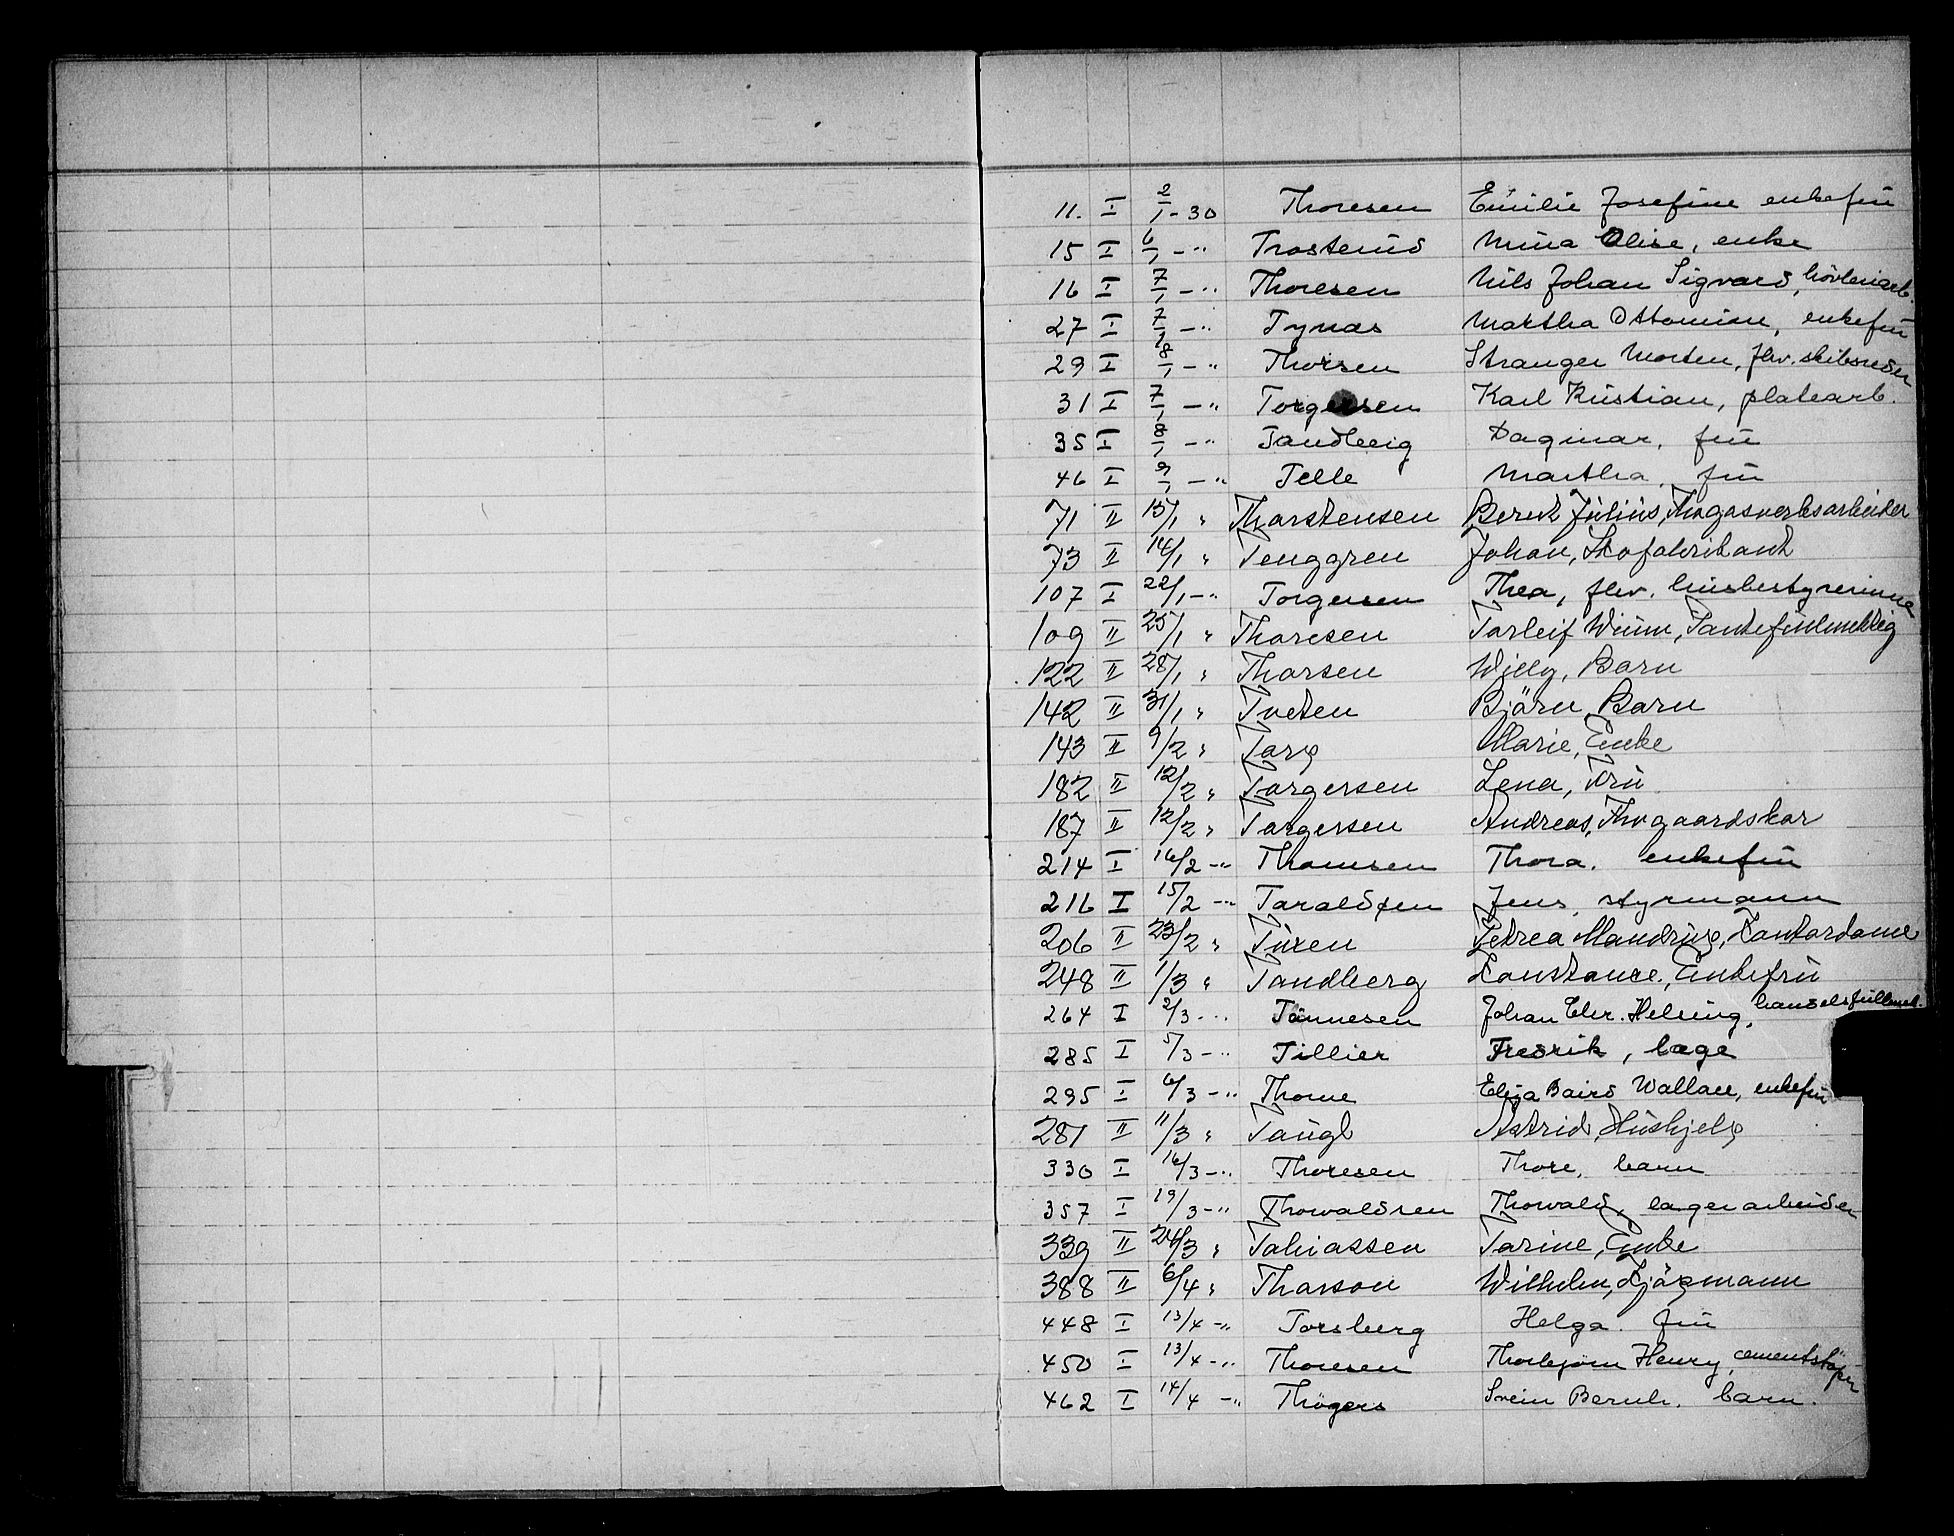 11. I 2/1 - 30 Thoresen Emilie Josefine enkefru
15 I 6/1 - " Trosterud Mina Olise, enke
16 I 7/1 - " Thoresen Nils Johan Sigvard, høvleriarb.
27 I 7/1 - " Tynæs Martha Ottomine, enkefru
29 I 8/1 - " Thorsen Stranger Morten, fhv. skibsreder
31 I 7/1 - " Torgersen Karl Kristian, platearb.
35 I 8/1 - " Tandberg Dagmar, fru
46 I 9/1 - " Telle Martha, fru
71 II 15/1 " Thorstensen Bernt Julius, Fhv gasverksarbeider
73 II 14/1 " Tenggren Johan, Skofabrikant
107 I 22/1 - " Torgersen Thea, fhv. husbestyrerinne
109 II 25/1 " Thoresen Torleif Winn,
122 II 28/1 " Thorsen Willy, Barn
142 II 31/1 " Tveten Björn, Barn
143 II 9/2 " Torp Marie, Enke
182 II 12/2 " Torgersen Lena, Fru
187 II 12/2 " Torgersen Andreas, Fhv gaardskar
214 I 16/2 - " Thomsen Thora. enkefru
216 I 15/2 - " Taraldsen Jens, styrmann
206 II 23/2 " Tuxen Petrea Mandrup, Kontordame
248 II 1/3 " Tandberg Konstance, Enkefru
264 I 2/3 - " Tönnesen Johan Chr. Helsing, handelsfullmek.
285 I 5/3 - " Tillier Fredrik, læge
295 I 6/3 - " Thorne Eliza Baird Wallace, enkefru
281 II 11/3 " Taugl Astrid, Hushjelp
330 I 16/3 - " Thoresen Thore, barn
357 I 19/3 - " Thorvaldsen Thorvald, lagerarbeider
339 II 24/3 " Tobiassen Torine, Enke
388 II 6/4 " Thorson Wilhelm, Kjöpmann
448 I 13/4 - " Torsberg Helga. fru
450 I 13/4 - " Thoresen Thorbjørn Henry, cementstøper
462 I 14/4 - " Thögers Svein Bernh. barn.